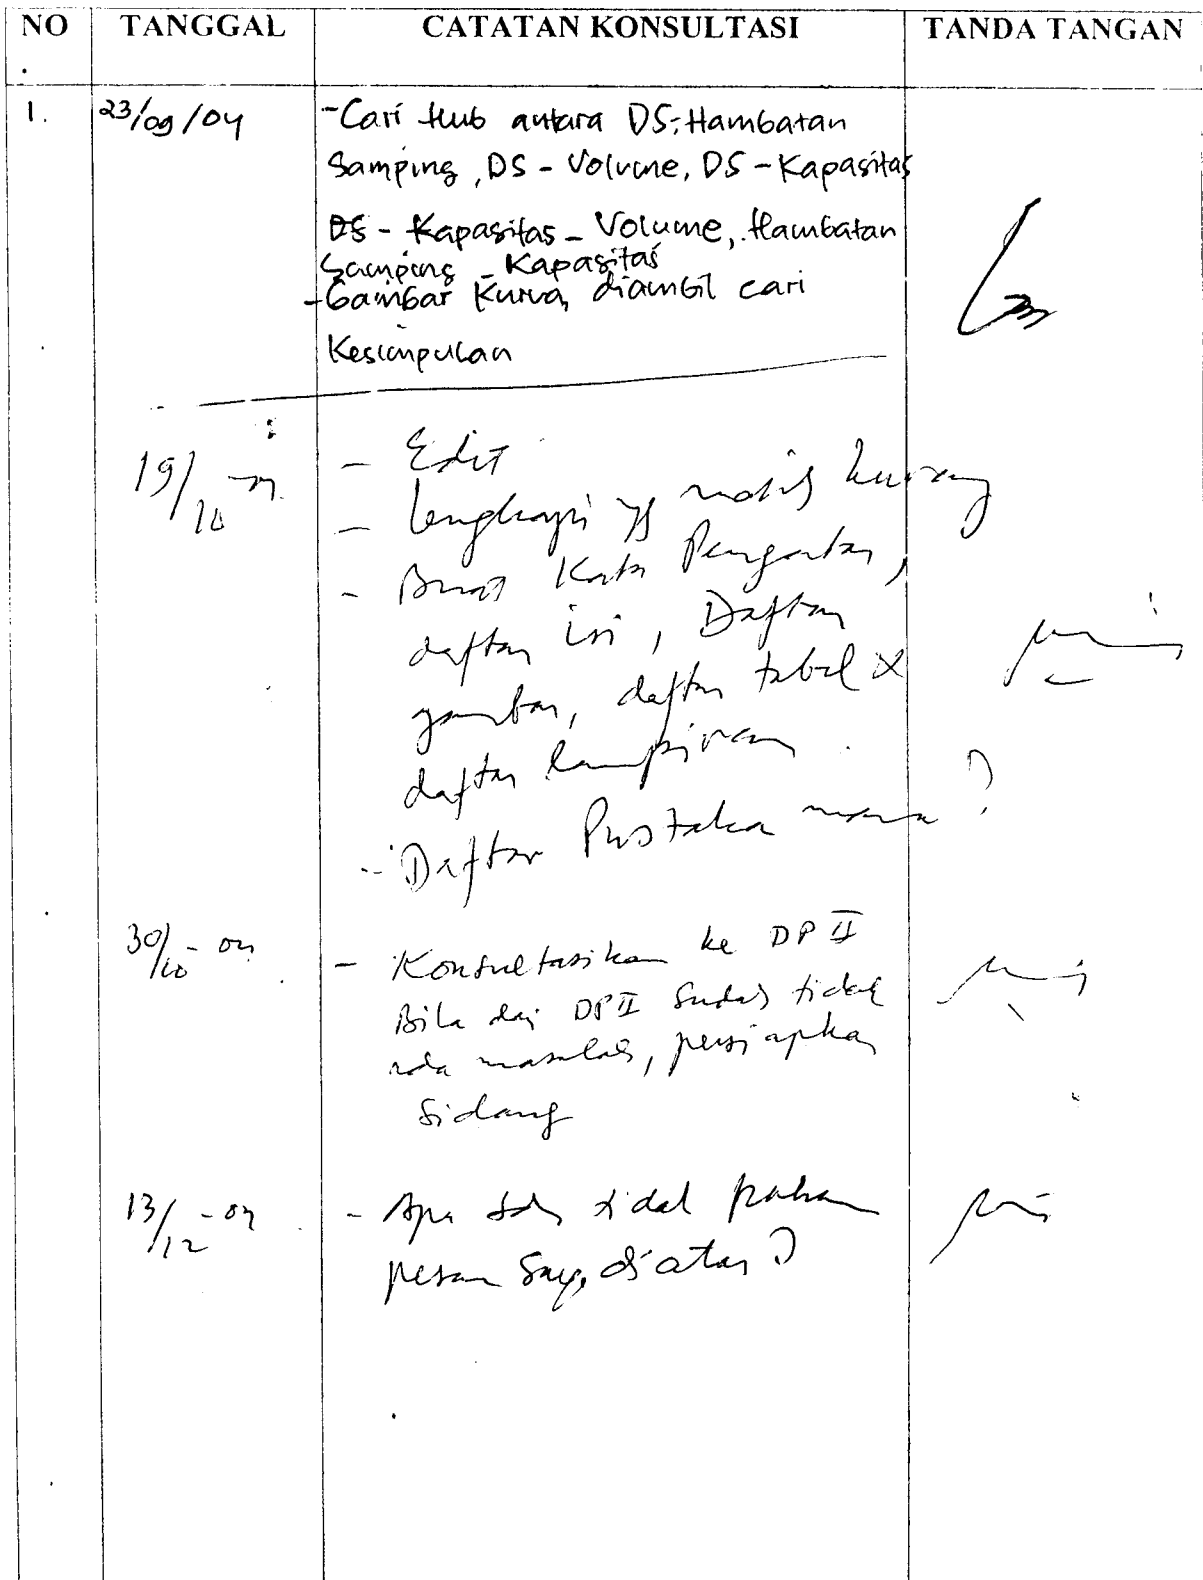 NO. TANGGAL CATATAN KONSULTASI TANDA TANGAN
1. 23/09/04 - Cari Hub antara DS-Hambatan
Samping, DS - Volume, DS - Kapasitas
DS - Kapasitas - Volume, Hambatan
Samping - Kapasitas
- Gambar Kurva, diambil cari
Kesimpulan
19/10 - 04 - Edit
- lengkapi yg masih kurang
- Buat Kata Pengantar,
daftar isi, Daftar
gambar, daftar tabel &
daftar lampiran.
- Daftar Pustaka mana?
30/10 - 04 - Konsultasikan ke DP II
Bila dari DP II sudah tidak
ada masalah, persiapkan
Sidang
13/12 - 04 - Apa tidak paham
pesan saya diatas?